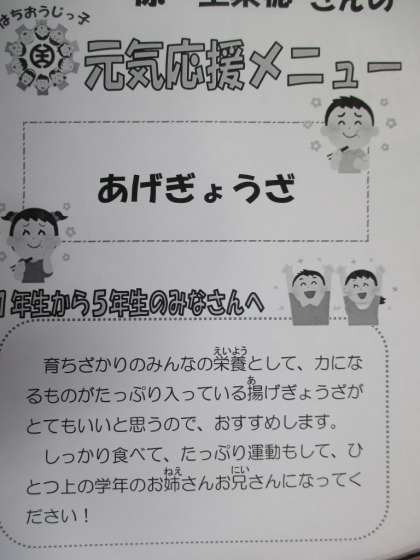 さんの
はちおうじっ子
元気応援メニュー
あげぎょうざ
1年生から5年生のみなさんへ
育ちざかりのみんなの栄養として、力にな
るものがたっぷり入っている揚げぎょうざが
とてもいいと思うので、おすすめします。
しっかり食べて、たっぷり運動もして、ひ
とつ上の学年のお姉さんお兄さんになってく
ださい！